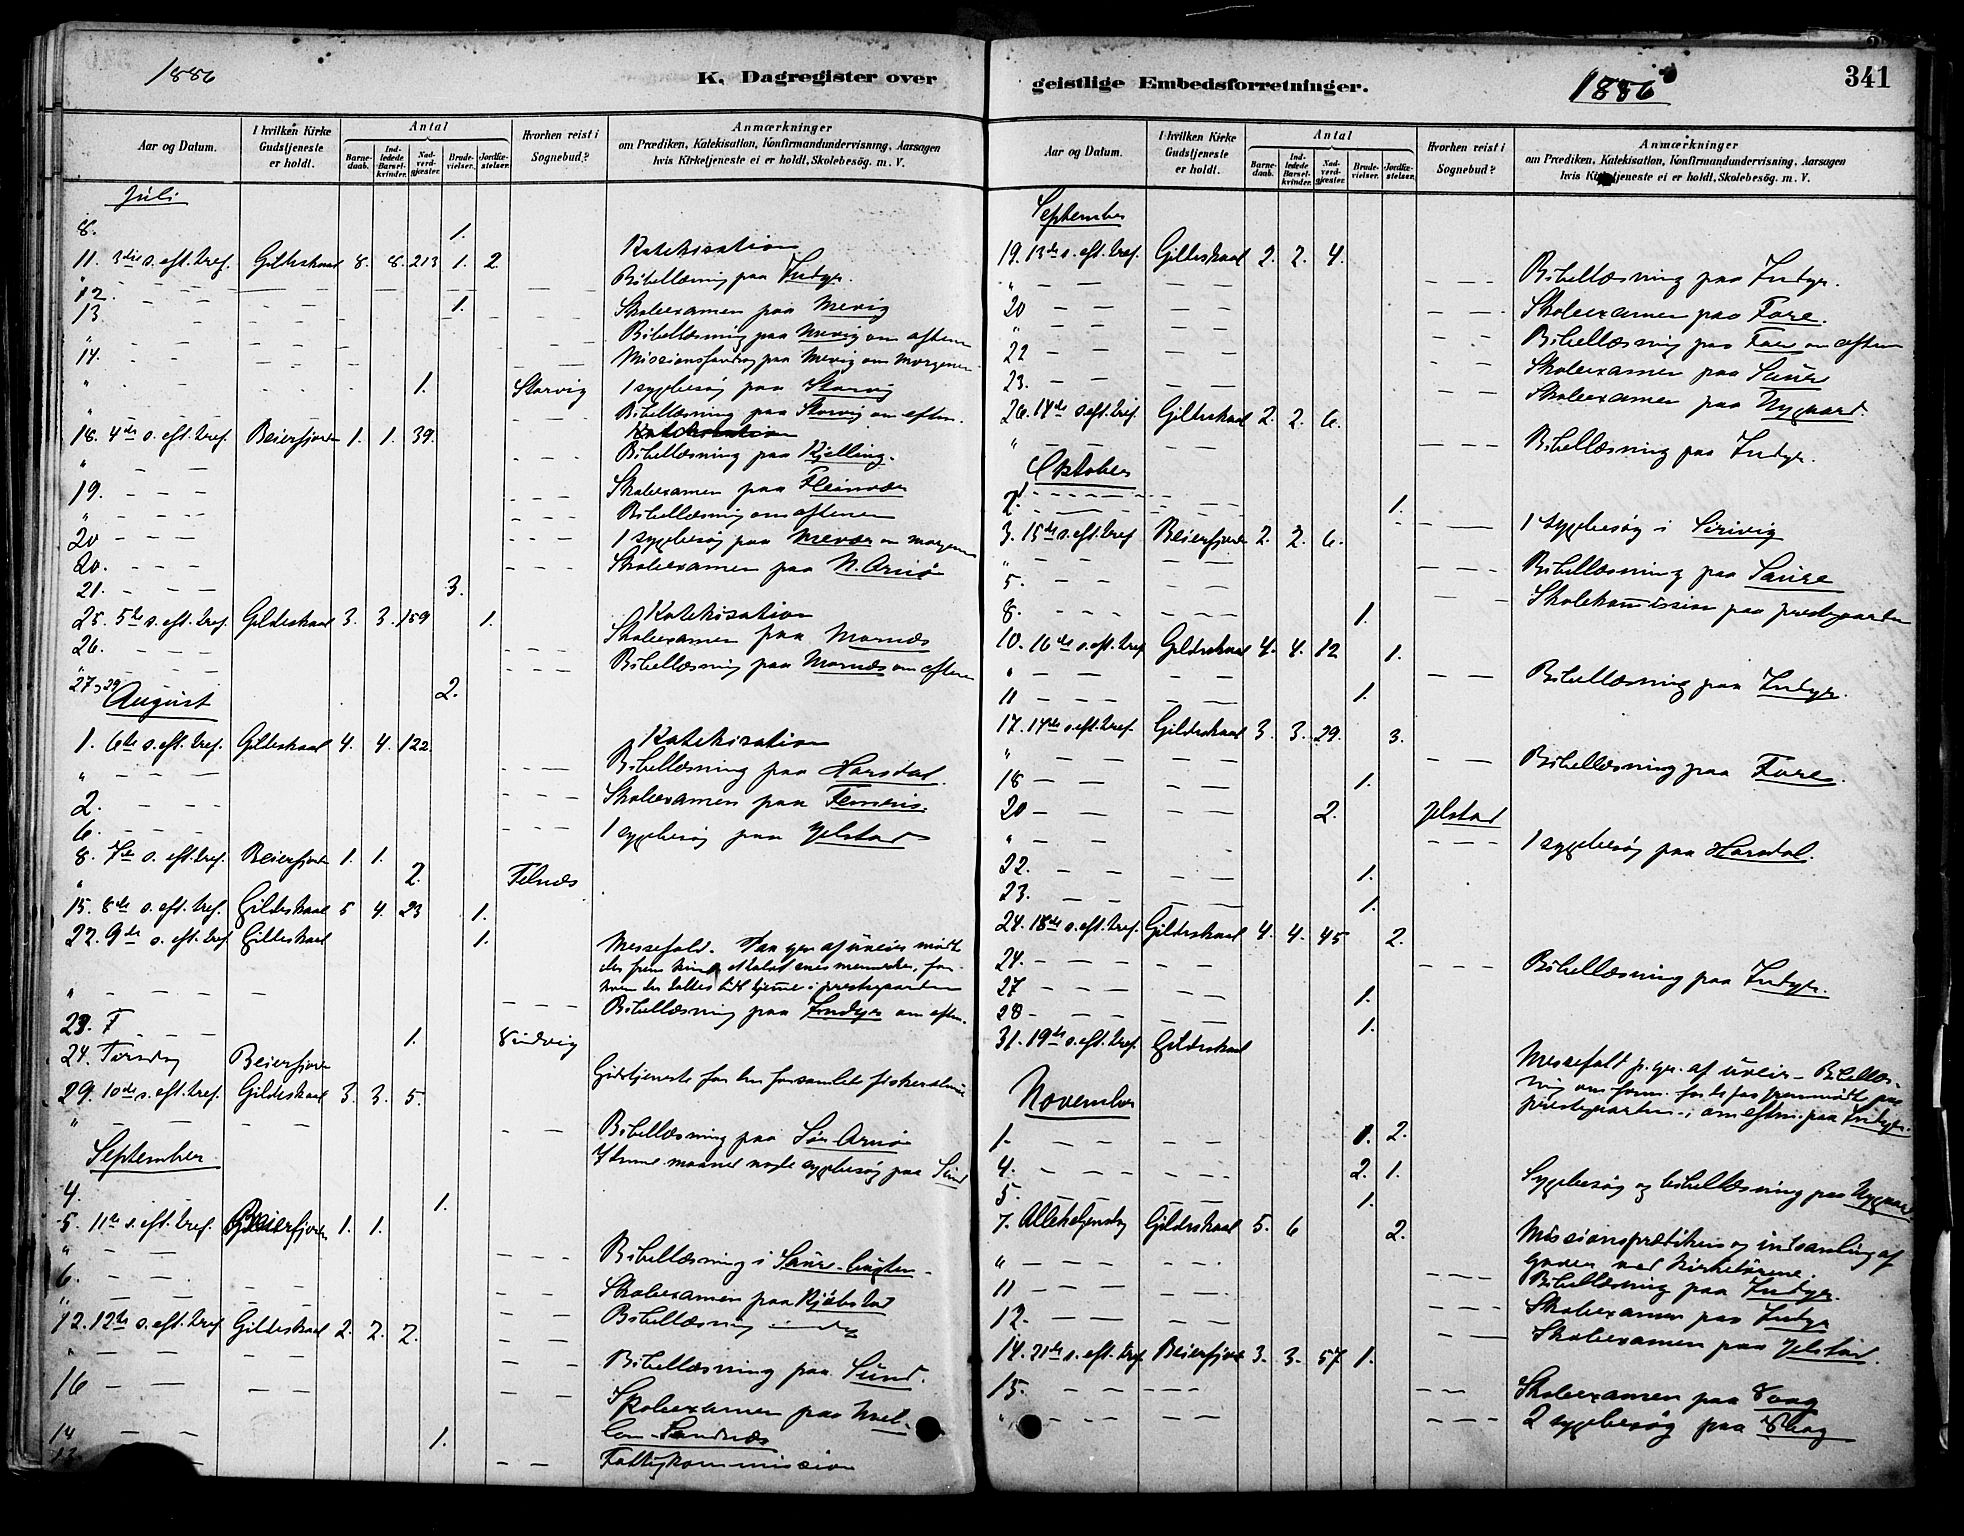 1886
K. Dagregister over
Aar og Datum. I hvilken Kirke Gudstjeneste er holdt. Antal Barnedaab. Indledede Barselkvinder. Nadverdgjæster. Brudevielser. Jordfæstelser. Hvorhen reist i Sognebud? Anmærkninger om Prædiken, Katekisation, Konfirmandundervisning, Aarsagen hvis Kirketjeneste ei er holdt, Skolebesøg. m. V.
Juli
8. 1.
11. 3die s. eft. tref. Gildeskaal 8. 8. 213 1. 2. Katekisation
" Bibellæsning paa Indyr.
12. 1.
13 Skoleexamen paa Mevig
" Bibellæsning paa Mevig om aftenen
14. Missionsforedrag paa Mevig om morgenen
" 1. Storvig 1 sygebesøg paa Storvig
" Bibellæsning paa Storvig om aften.
18. 4de s. eft. tref. Beierfjoren 1. 1. 39. Katekisation
" Bibellæsning paa Kjelling.
19. Skoleexamen paa Fleinvær
" Bibellæsning om aftenen
20 1 sygebesøg paa Mevær om morgenen
20. Skoleexamen paa N. Arnø
21. 3.
25. 5te s. eft. tref. Gildeskaal 3. 3. 159 1. Katekisation
26. Skoleexamen paa Mornæs
" Bibellæsning paa Mornæs om aftenen
27, 29 2.
August
1. 6te s. eft. tref. Gildeskaal 4. 4. 122. Katekisation
" Bibellæsning paa Horsdal
2. Skoleexamen paa Femris.
6. 1 sygebesøg paa Ylstad
8. 7de s. eft. tref. Beierfjoren 1. 1.
" 2. Felnæs
15. 8de s. eft. tref. Gildeskaal 5 4. 23 1.
22. 9de s. eft. tref. Gildeskaal 1. Messefald. Paa gr. af uveir mødte
der frem kun et halvt snes mennesker, for
hvem der taltes lidt hjemme i prestegaarden
" Bibellæsning paa Indyr om aften.
23. 1. Sundvig
24. Torsdag Beierfjoren Gudstjeneste for
29. 10de s. eft. tref. Gildeskaal 3. 3. 5.
" Bibellæsning paa Sør Arnø
September I denne maaned nogle sygebesøg paa Sund
4. 1.
5. 11te s. eft. tref. Beierfjoren 1. 1.
" Bibellæsning i Saura-bugten
6. Skoleexamen paa Kjøbstad
" Bibellæsning
12. 12te s. eft. tref. Gildeskaal 2. 2. 2.
" Bibellæsning paa Sund.
16 Skoleexamen paa
14 1. Sandnæs
Fattigkommission
geistlige Embedsforretninger. 1886 341
Aar og Datum. I hvilken Kirke Gudstjeneste er holdt. Antal Barnedaab. Indledede Barselkvinder. Nadverdgjæster. Brudevielser. Jordfæstelser. Hvorhen reist i Sognebud? Anmærkninger om Prædiken, Katekisation, Konfirmandundervisning, Aarsagen hvis Kirketjeneste ei er holdt, Skolebesøg. m. V.
September
19. 13de s. eft. tref. Gildeskaal 2. 2. 4.
" Bibellæsning paa Indyr.
20 Skoleexamen paa Fore.
" Bibellæsning paa Fore om aftenen
22 Skoleexamen paa Saura
23. Skoleexamen paa Nygaard.
26. 14de s. eft. tref. Gildeskaal 2. 2. 6.
" Bibellæsning paa Indyr.
Oktober
2. 1. 1 sygebesøg i Sirivig
3. 15de s. eft. tref Beierfjoren 2. 2. 6.
" Bibellæsning paa Saura
5. Skolekommission paa prestegaarden
8. 1.
10. 16de s. eft. tref Gildeskaal 4. 4. 12 1.
" Bibellæsning paa Indyr.
11 1.
17. 17de s. eft. tref. Gildeskaal 3. 3. 29. 3.
" Bibellæsning paa Fore.
18 1.
20 2. Ylstad
" 1 sygebesøg paa Horsdal.
22. 1.
23. 1.
24. 18de s. eft. tref. Gildeskaal 4. 4. 45 2.
24. Bibellæsning paa Indyr.
27 1.
28 1.
31. 19de s. eft. tref. Gildeskaal Messefald p. gr. af uveir - Bibellæs-
ning om form. for de faa fremmødte paa
prestegaarden - om eftm. paa Indyr.
November
1. 1. 2.
4. 2. 1. Sygebesøg og bibellæsning paa Nygaard
5. 1.
7. Allehelgensdag Gildeskaal 5. 6 2. Missionsprædiken og indsamling af
gaver ved kirkedørene.
" Bibellæsning paa Indyr.
11 Skoleexamen paa Indyr
12. Skoleexamen paa Ylstad.
14. 21de s. eft. tref. Beierfjoren 3. 3. 57 1.
15. Skoleexamen paa Vaag
" 2 sygebesøg paa